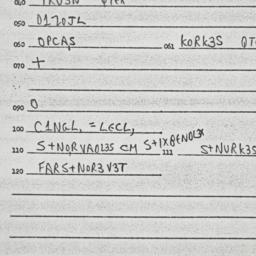 050 D170JL
050 OPCAS 061 KORK3S OT
070 +
090 O
100 C1NGL, = LECL,
110 S+NORVAOL3S CM S+1XBENOL3X 111 S+NURK3S
120 FARS+NOR3V3T